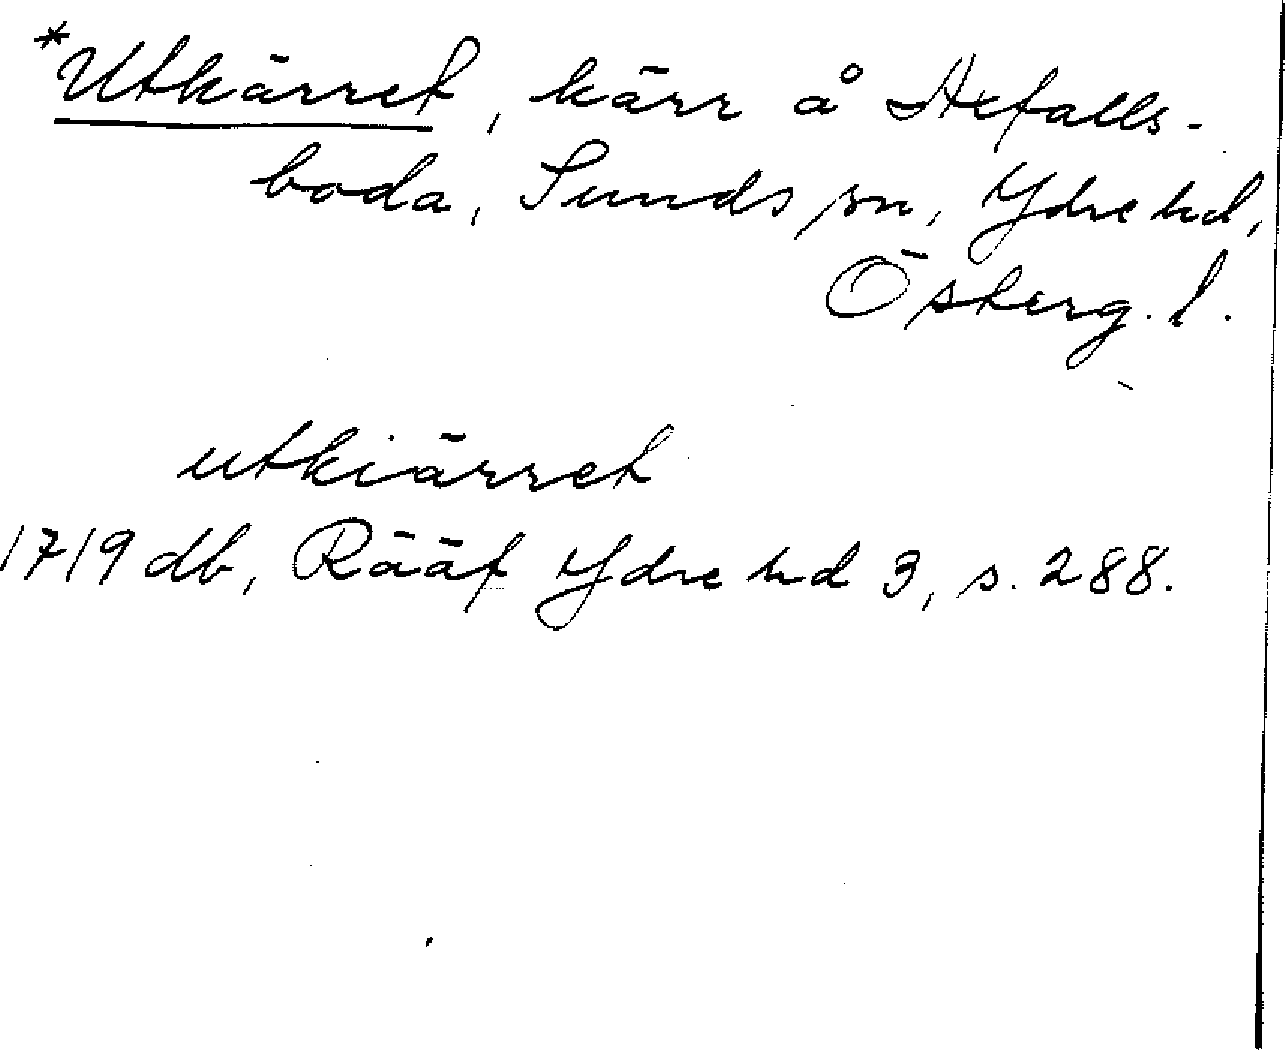 *Utkärret, kärr å Axefalls-
boda, Sunds sn, Ydre hd,
Österg. l.
utkiärret
1719 db, Rääf Ydre hd 3, s. 288.